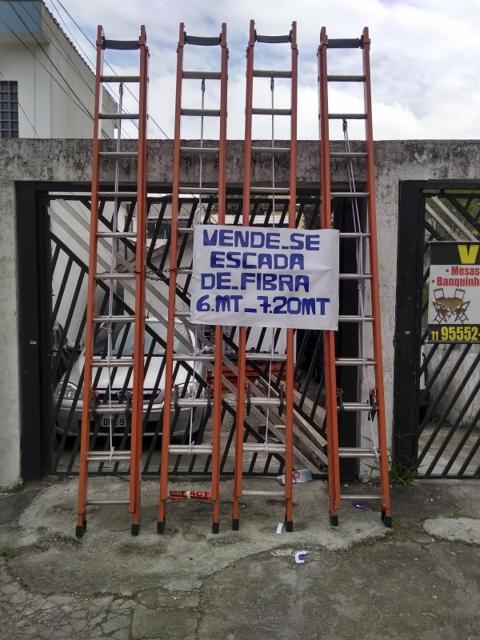 VENDE_SE
ESCADA
DE_FIBRA
6.MT_7.20MT
V
• Mesas
• Banquinh
11 95552-
ACT